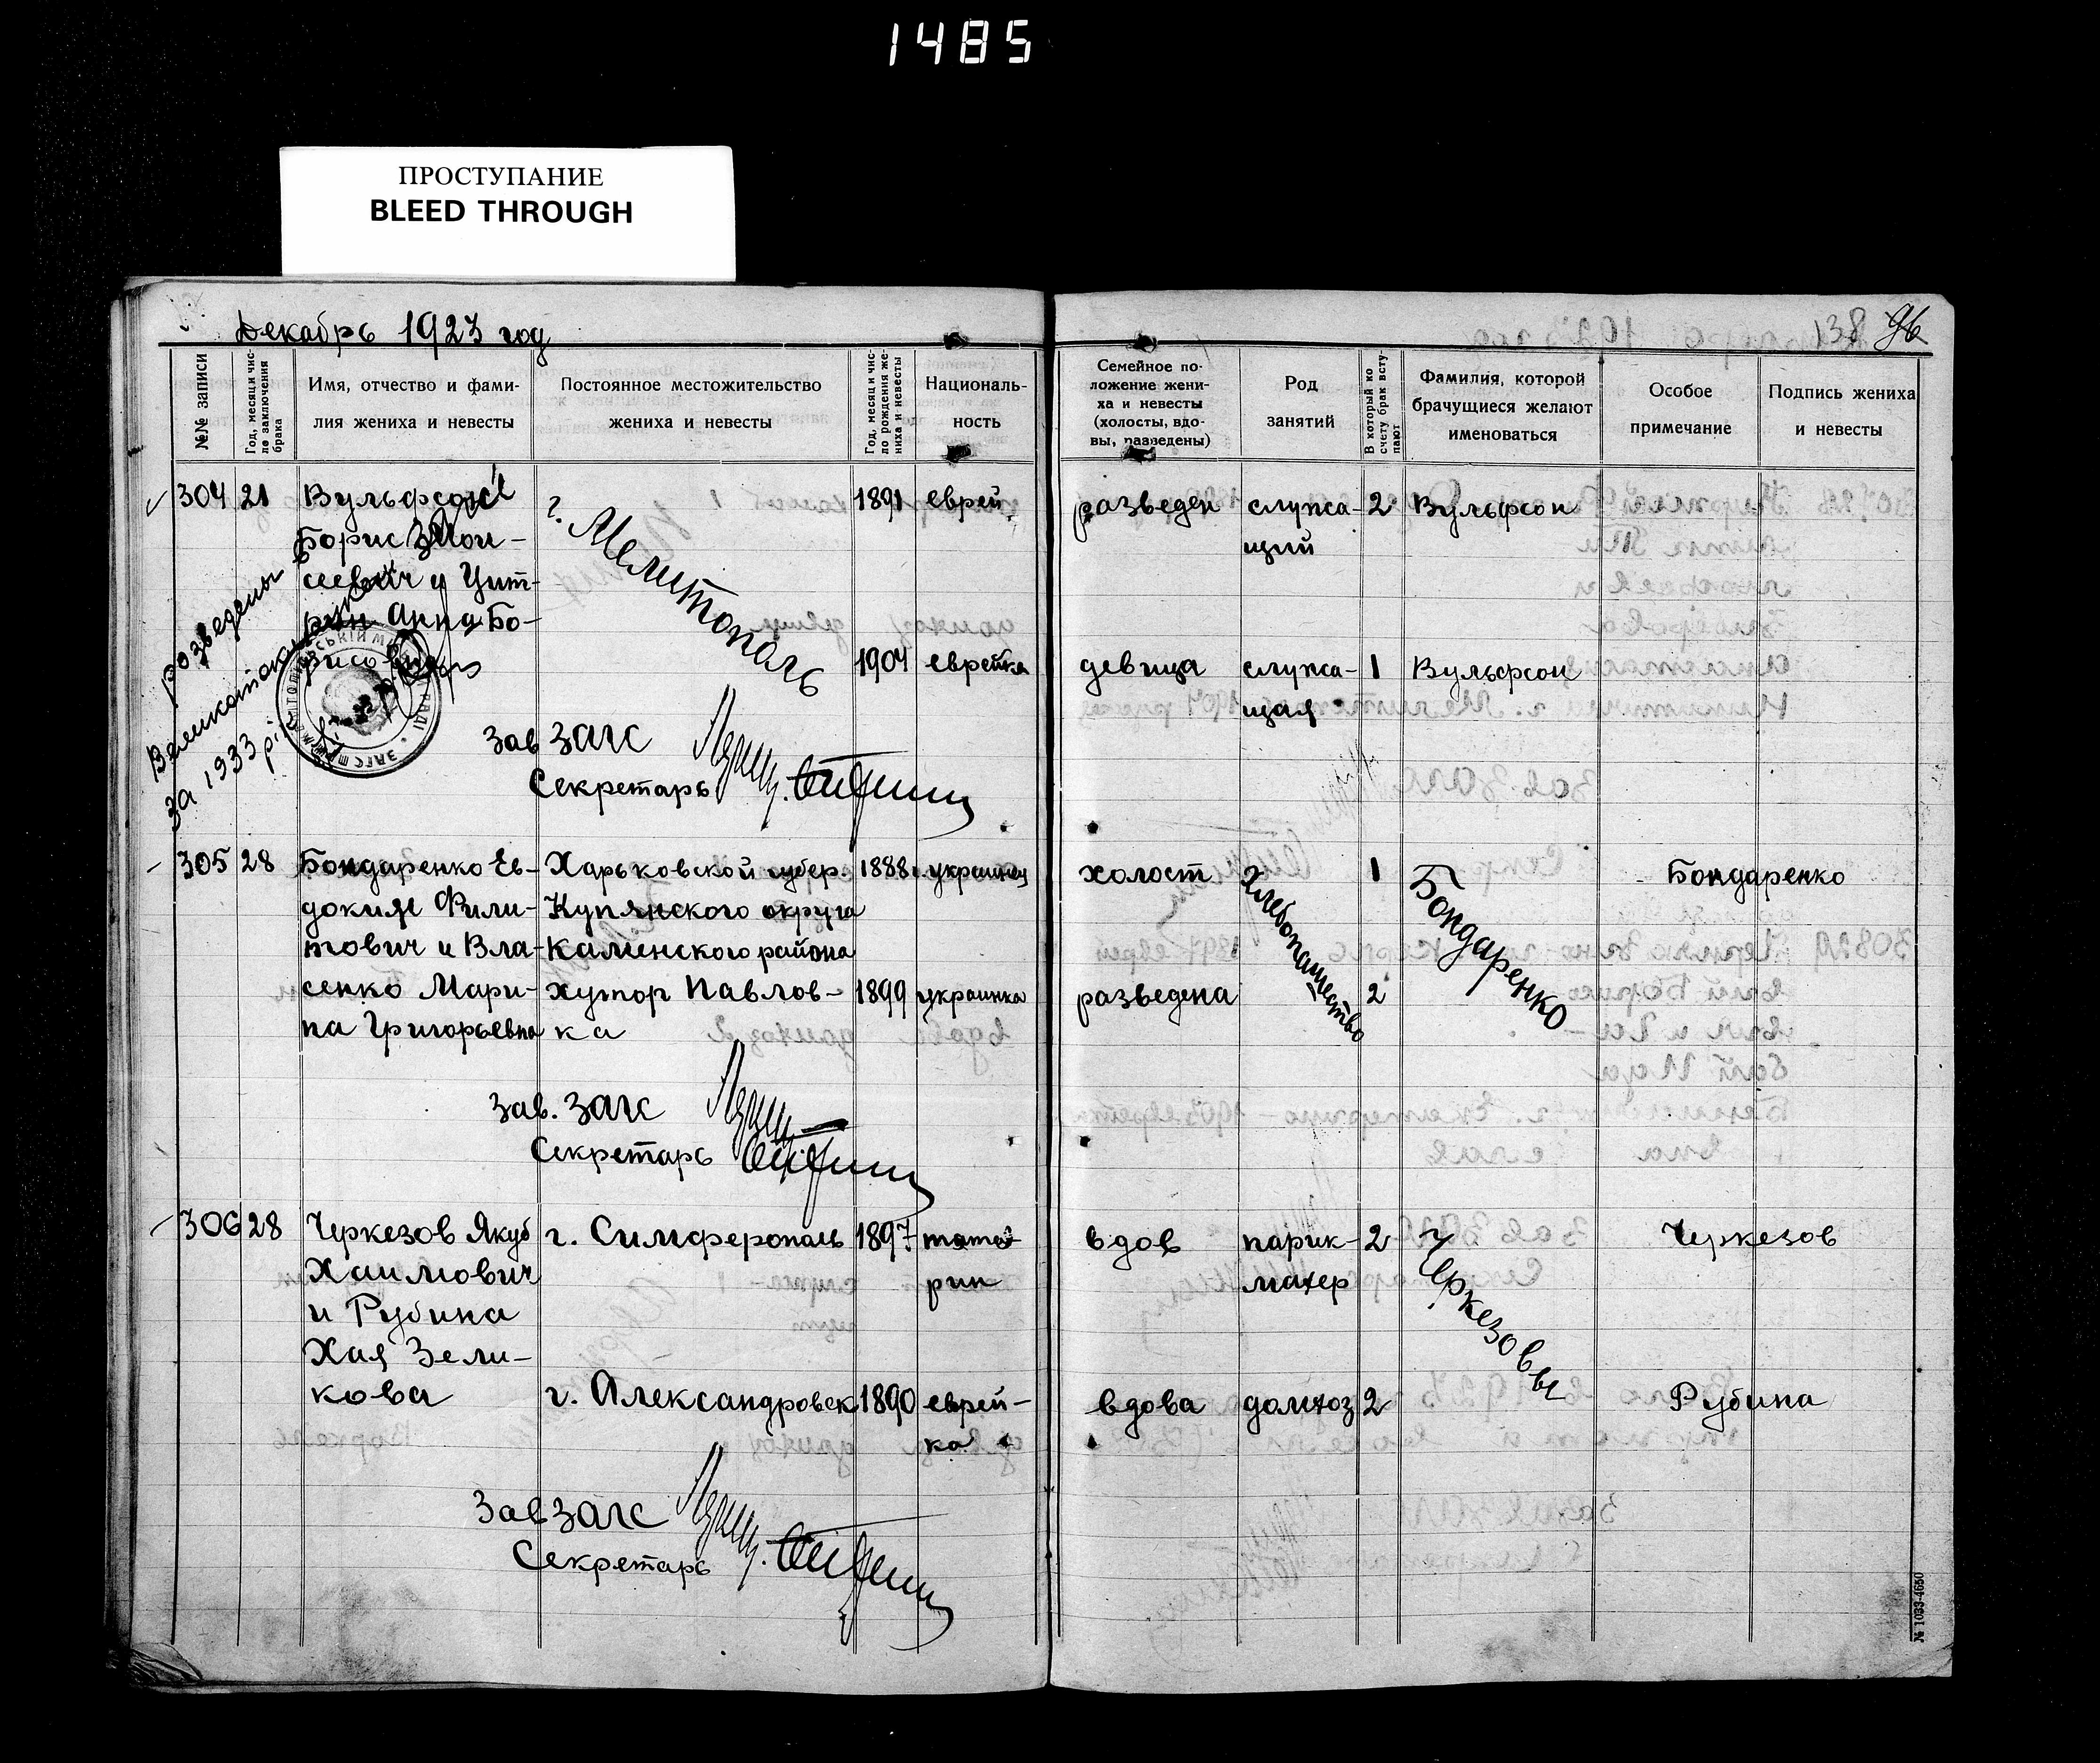 1485
ПРОСТУПАНИЕ
BLEED THROUGH
Декабрь 1923 год
138 96
№№ записи
Год, месяц и чис-
ло заключения
брака
Имя, отчество и фами-
лия жениха и невесты
Постоянное местожительство
жениха и невесты
Год, месяц и чис-
ло рождения же-
ниха и невесты
Националь-
ность
Семейное по-
ложение жени-
ха и невесты
(холосты, вдо-
вы, разведены)
Род
занятий
В который по
счету брак всту-
пают
Фамилия, которой
брачущиеся желают
именоваться
Особое
примечание
Подпись жениха
и невесты
304 21
Вульфсон
Борис Мои-
сеевич и Цит-
рин Анна Бо-
рисовна
г. Мелитополь
1891 еврей
разведен
служа-
щий
2
Вульфсон
1904 еврейка
девица
служа-
щая
1
Вульфсон
розведены
за 1933 рік
Зав ЗАГС
Секретарь
305 28
Бондаренко Ев-
доким Фили-
пович и Вла-
сенко Мари-
на Григорьевна
Харьковской губер.
Купянского округа
Каменского района
хутор Павлов-
ка
1888 г. украинец
холост
Хлебопашество
1
Бондаренко
Бондаренко
1899 украинка
разведена
2
Зав. ЗАГС
Секретарь
306 28
Черкезов Якуб
Хаимович
и Рубина
Хая Зели-
кова
г. Симферополь
1897 г.
тата-
рин
вдов
парик-
махер
2
Черкезовы
Черкезов
г. Александровск
1890
еврей-
ка
вдова
домхоз
2
Рубина
Зав ЗАГС
Секретарь
№ 1033-4650